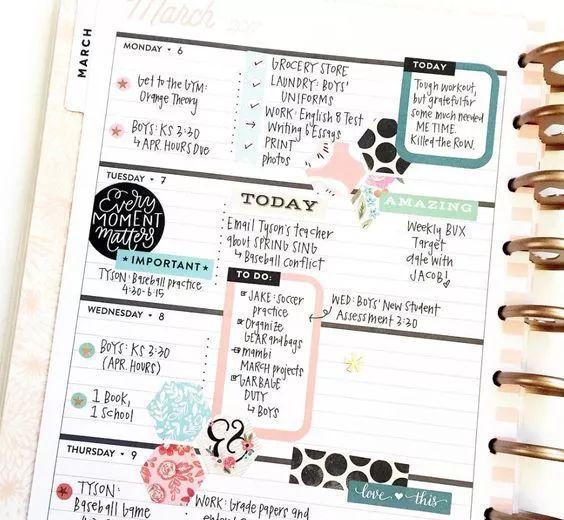 March 2017
MARCH
MONDAY • 6
Get to the GYM:
Orange Theory
BOYS: KS 3:30
↳ APR. HOURS DUE
GROCERY STORE
LAUNDRY: BOYS'
UNIFORMS
WORK: English 8 Test
→ Writing 6 Essays
PRINT
photos
TODAY
Tough workout,
but grateful for
some much needed
ME TIME.
Killed the ROW.
TUESDAY • 7
Every
MOMENT
matters
★ IMPORTANT ★
TYSON: Baseball practice
4:30-6:15
TODAY
Email Tyson's teacher
about SPRING SING
↳ Baseball conflict
AMAZING
Weekly BUX
Target
date with
JACOB!
TO DO:
JAKE: soccer
practice
Organize
GEAR and bags
mambi
MARCH projects
GARBAGE
DUTY
↳ BOYS
WED: BOYS' New Student
Assessment 3:30
WEDNESDAY • 8
BOYS: KS 3:30
(APR. HOURS)
1 Book,
1 School
&
THURSDAY • 9
TYSON:
Baseball Game
WORK: Grade papers and
love ♥ this